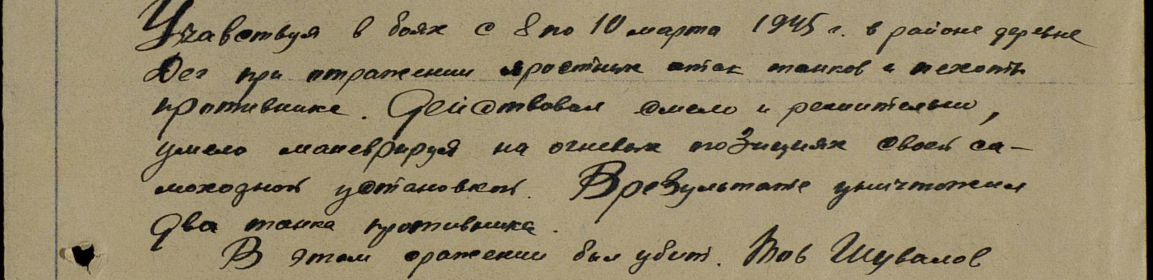 Учавствуя в боях с 8 по 10 марта 1945 г. в районе деревне
Дег при отражении яростных атак танков и пехоты
противника. Действовал смело и решительно,
умело маневрируя на огневых позициях своей са-
моходной установкой. В результате уничтожил
два танка противника.
В этом сражении был убит. Тов Шувалов